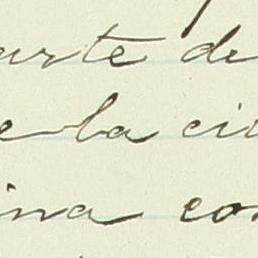 arte de
e la ci
ina con